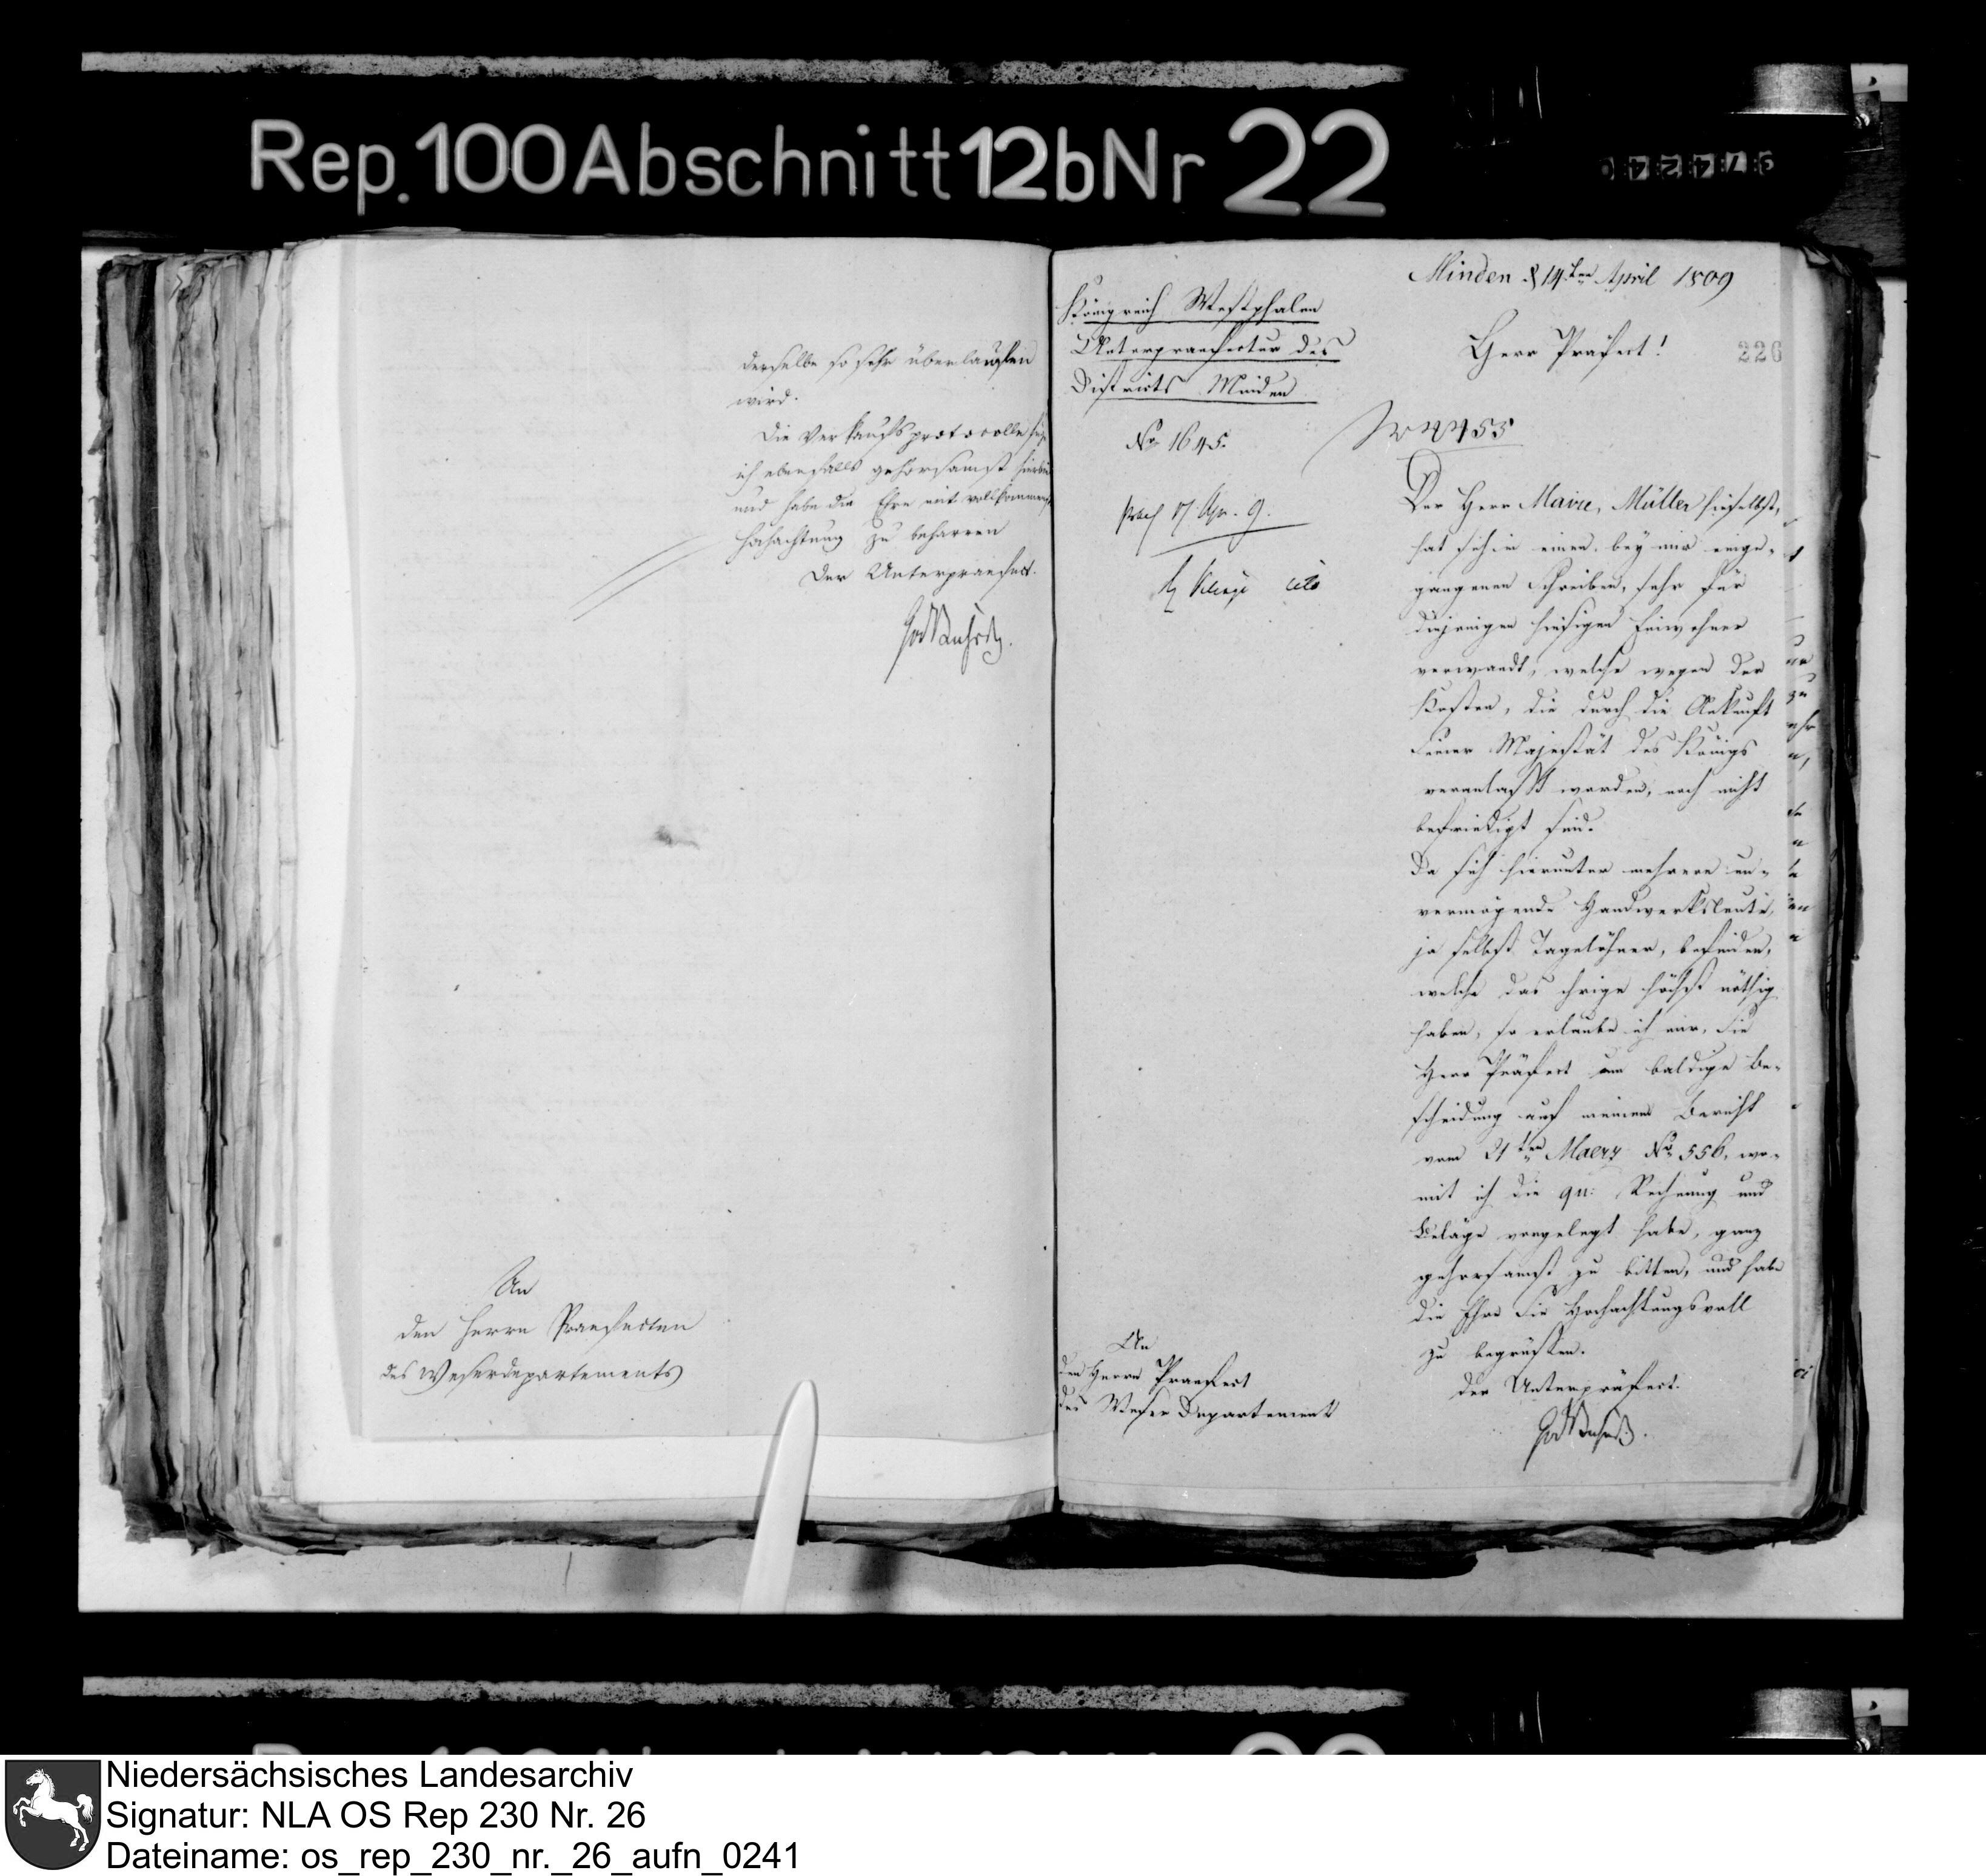 Rep. 100 Abschnitt 12b Nr 22
derselbe so sehr überlaufen
wird.
Die Verkaufsprotocolle
ich ebenfalls gehorsamst
und habe die Ehre mit
Hochachtung zu beharren
Der Unterpraefect.
An
den Herrn Praefecten
des Weserdepartements
Minden d 14ten April 1809
Königreich Westphalen
Unterpraefectur des
Districts Minden
Herr Präfect!
226
No 1645.
praes 17 Apr. 9.
cito
Der Herr Maire, Müller hieselbst,
hat sich in einem bey mir einge-
gangenen Schreiben, sehr für
diejenigen hiesigen Einwohner
verwandt, welche wegen der
Kosten, die durch die Ankunft
Seiner Majestät des Königs
veranlasst worden, noch nicht
befriedigt sind.
Da sich hierunter mehrere un-
vermögende Handwerksleute,
ja selbst Tagelöhner, befinden,
welche das ihrige höchst nöthig
haben, so erlaube ich mir, Sie
Herr Präfect um baldige Be-
scheidung auf meinen Bericht
vom 21ten Maerz No 556, wo-
mit ich die qu: Rechnung und
Beläge vorgelegt habe, ganz
gehorsamst zu bitten, und habe
die Ehre Sie Hochachtungsvoll
zu begrüssen.
Der Unterpräfect.
An
den Herrn Praefect
des Weser Departements
Niedersächsisches Landesarchiv
Signatur: NLA OS Rep 230 Nr. 26
Dateiname: os_rep_230_nr._26_aufn_0241